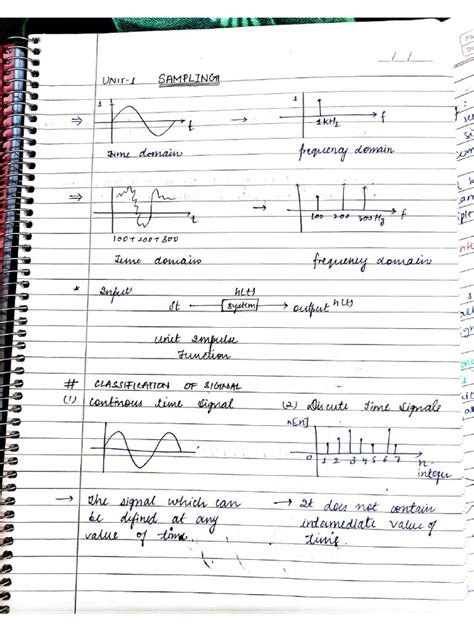 _/_/_
UNIT-1 SAMPLING
1
t
1
1kHz
f
Time domain
frequency domain
t
100+200+300
100 200 300Hz f
Time domain
frequency domain
* Input
h(t)
δt system output h(t)
Unit Impulse
Function
# CLASSIFICATION OF SIGNAL
(1) Continous time Signal
(2) Discute Time Signals
n[n]
0 1 2 3 4 5 6 7 n
integer
→ The signal which can
be defined at any
value of time.
→ It does not contain
intermediate value of
Time.